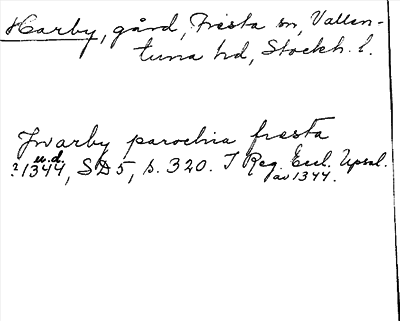 Harby, gård, Fresta sn, Vallen-
tuna hd, Stockh. l.
Jwarby parochia fresta
u.d.
? 1344, SD 5, s. 320. I Reg. Eccl. Upsal.
av 1344.